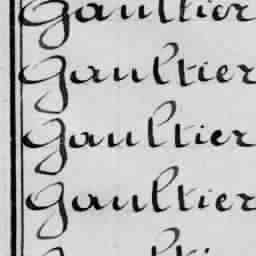 Gaultier
Gaultier
Gaultier
Gaultier